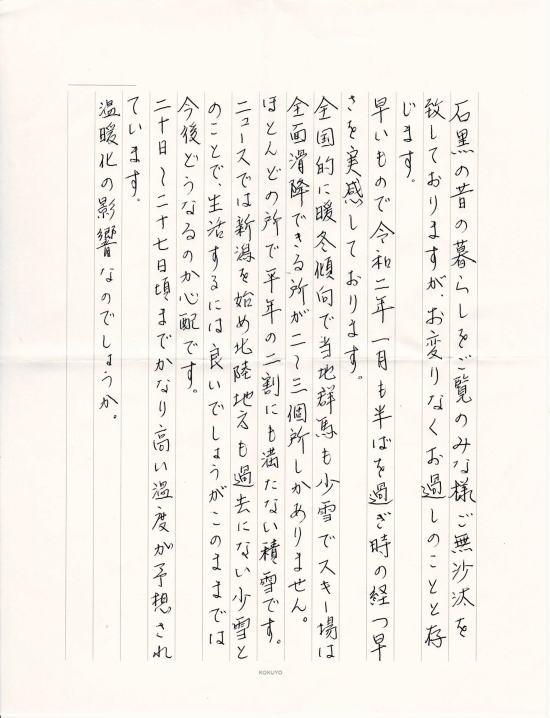 石黒の昔の暮らしをご覧のみな様ご無沙汰を
致しておりますが、お変りなくお過しのことと存
じます。
早いもので令和二年一月も半ばを過ぎ時の経つ早
さを実感しております。
全国的に暖冬傾向で当地群馬も少雪でスキー場は
全面滑降できる所が二～三個所しかありません。
ほとんどの所で平年の二割にも満たない積雪です。
ニュースでは新潟を始め北陸地方も過去にない少雪と
のことで、生活するには良いでしょうがこのままでは
今後どうなるのか心配です。
二十日～二十七日頃までかなり高い温度が予想され
ています。
温暖化の影響なのでしょうか。
KOKUYO